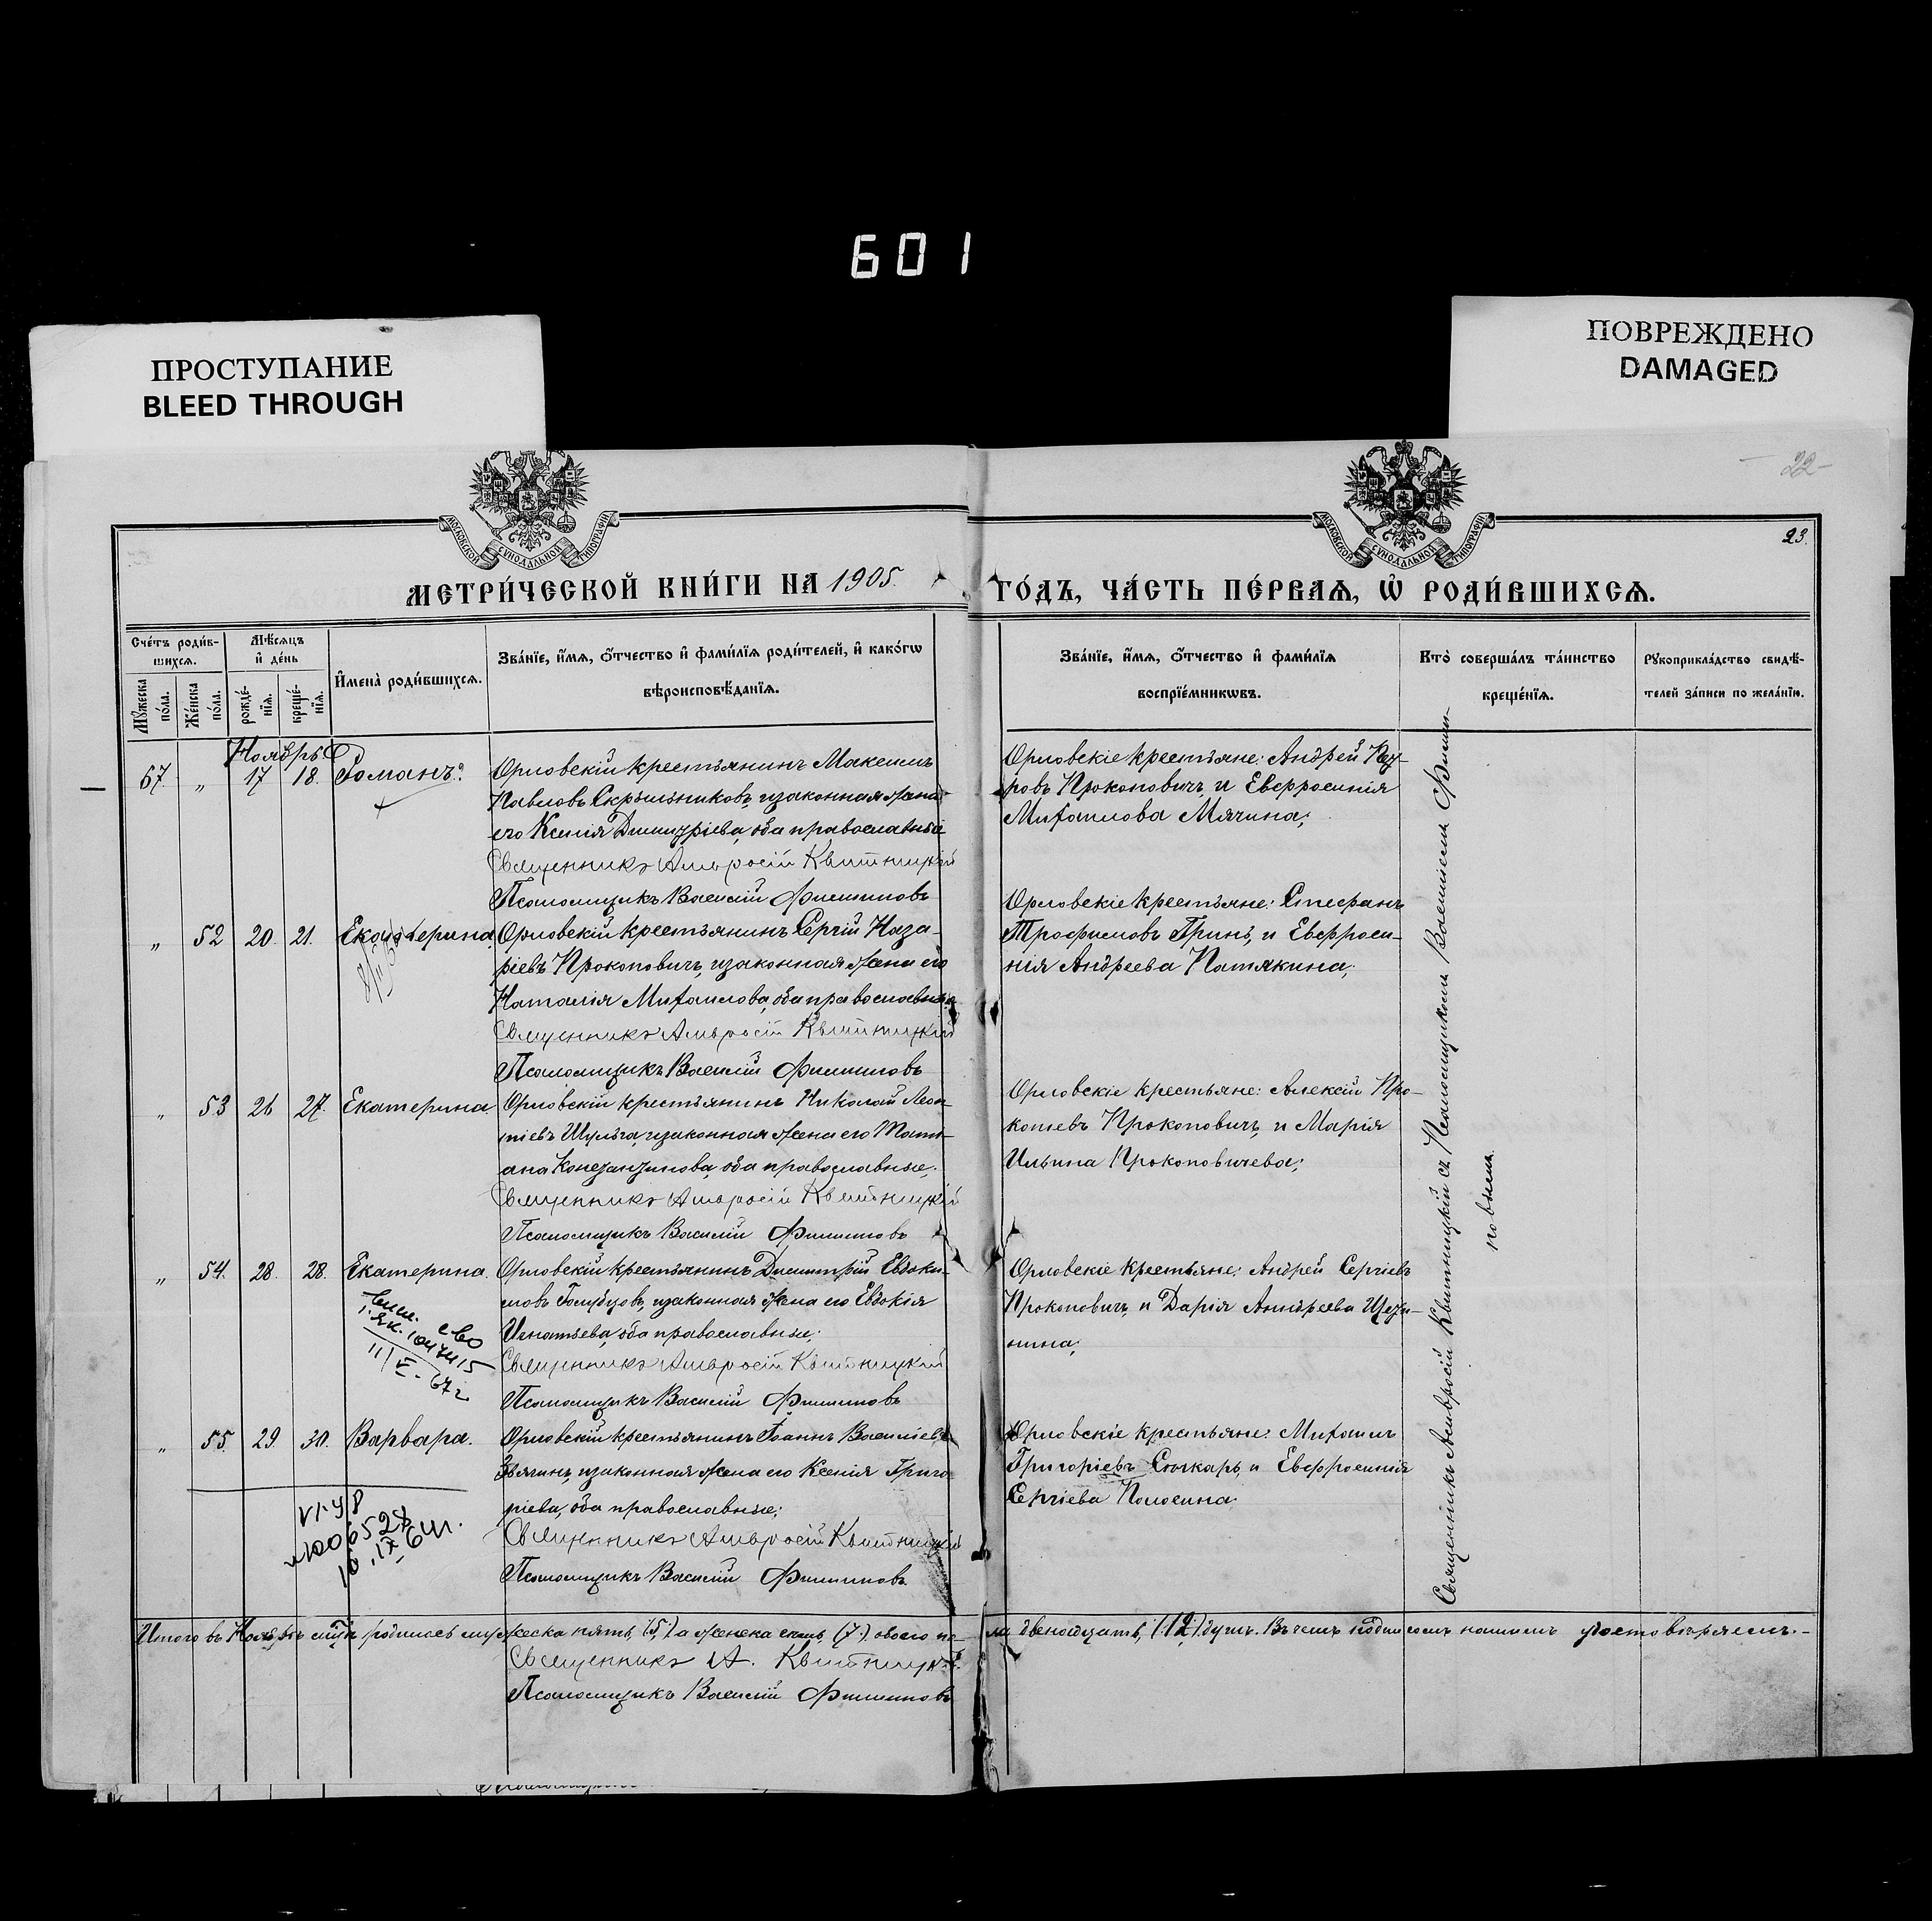 601
ПРОСТУПАНИЕ
BLEED THROUGH
ПОВРЕЖДЕНО
DAMAGED
22
МОСКОВСКОЙ СѴНОДАЛЬНОЙ ТИПОГРАФІИ
МОСКОВСКОЙ СѴНОДАЛЬНОЙ ТИПОГРАФІИ
23.
МЕТРИ́ЧЕСКОЙ КНИ́ГИ НА 1905.
ГО́ДЪ, ЧА́СТЬ ПЕ́РВАѦ, Ѡ҆ РОДИ́ВШИХСѦ.
Сче́тъ роди́в-
шихсѧ.
Мꙋ́жеска по́ла.
Же́нска по́ла.
Мѣ́сѧцъ
и҆ де́нь
рожде́-
нїѧ.
креще́-
нїѧ.
И҆мена̀ роди́вшихсѧ.
Зва́нїе, и҆́мѧ, ѻ҆́тчество и҆ фами́лїѧ роди́телей, и҆ како́гѡ
вѣроисповѣ́данїѧ.
Зва́нїе, и҆́мѧ, ѻ҆́тчество и҆ фами́лїѧ
воспрїе́мникѡвъ.
Кто̀ соверша́лъ та́инство
креще́нїѧ.
Рꙋкоприкла́дство свидѣ́-
телей за́писи по жела́нїю.
Ноябрь
67. „ 17 18. Романъ.
Орловскій крестьянинъ Максимъ
Павловъ Скрыльниковъ, и законная жена
его Ксенія Димитріева, оба православные
Священникъ Амвросій Квитницкій
Псаломщикъ Василій Филиповъ
Орловскіе крестьяне: Андрей Пет-
ровъ Прокоповичъ, и Евфросинія
Михаилова Мячина;
„ 52 20. 21. Екатерина
Орловскій крестьянинъ Сергій Наза-
ріевъ Прокоповичъ, и законная жена его
Наталія Михаилова, оба православные
Священникъ Амвросій Квитницкій
Псаломщикъ Василій Филиповъ
Орловскіе крестьяне: Стефанъ
Трофимовъ Гринь, и Евфроси-
нія Андреева Патякина;
„ 53 26 27. Екатерина
Орловскій крестьянинъ Николай Леон-
тіевъ Шульга, и законная жена его Тати-
ана Константинова, оба православные;
Священникъ Амвросій Квитницкій
Псаломщикъ Василій Филиповъ
Орловскіе крестьяне: Алексій Про-
копьевъ Прокоповичъ, и Марія
Ильина Прокоповичева;
„ 54. 28. 28. Екатерина.
Орловскій крестьянинъ Димитрій Евдоки-
мовъ Голубцовъ, и законная жена его Евдокія
Игнатьева, оба православные;
Священникъ Амвросій Квитницкій
Псаломщикъ Василій Филиповъ
Орловскіе крестьяне: Андрей Сергіевъ
Прокоповичъ, и Дарія Андреева Щети-
нина;
„ 55. 29. 30. Варвара.
Орловскій крестьянинъ Іоаннъ Василіевъ
Звягинъ, и законная жена его Ксенія Григо-
ріева, оба православные;
Священникъ Амвросій Квитницкій
Псаломщикъ Василій Филиповъ
Орловскіе крестьяне: Михаилъ
Григоріевъ Слюкарь, и Евфросинія
Сергіева Полосина
Священникъ Амвросій Квитницкій съ Псаломщикомъ Василіемъ Филип-
повымъ.
Итого въ Ноябрѣ м-цѣ родилось мужеска пять, (5,) а женска семь, (7,) обоего по-
ла двенадцать, (12,) душъ. Въ чемъ подписомъ нашимъ удостовѣряемъ.-
Священникъ А. Квитницкій
Псаломщикъ Василій Филиповъ